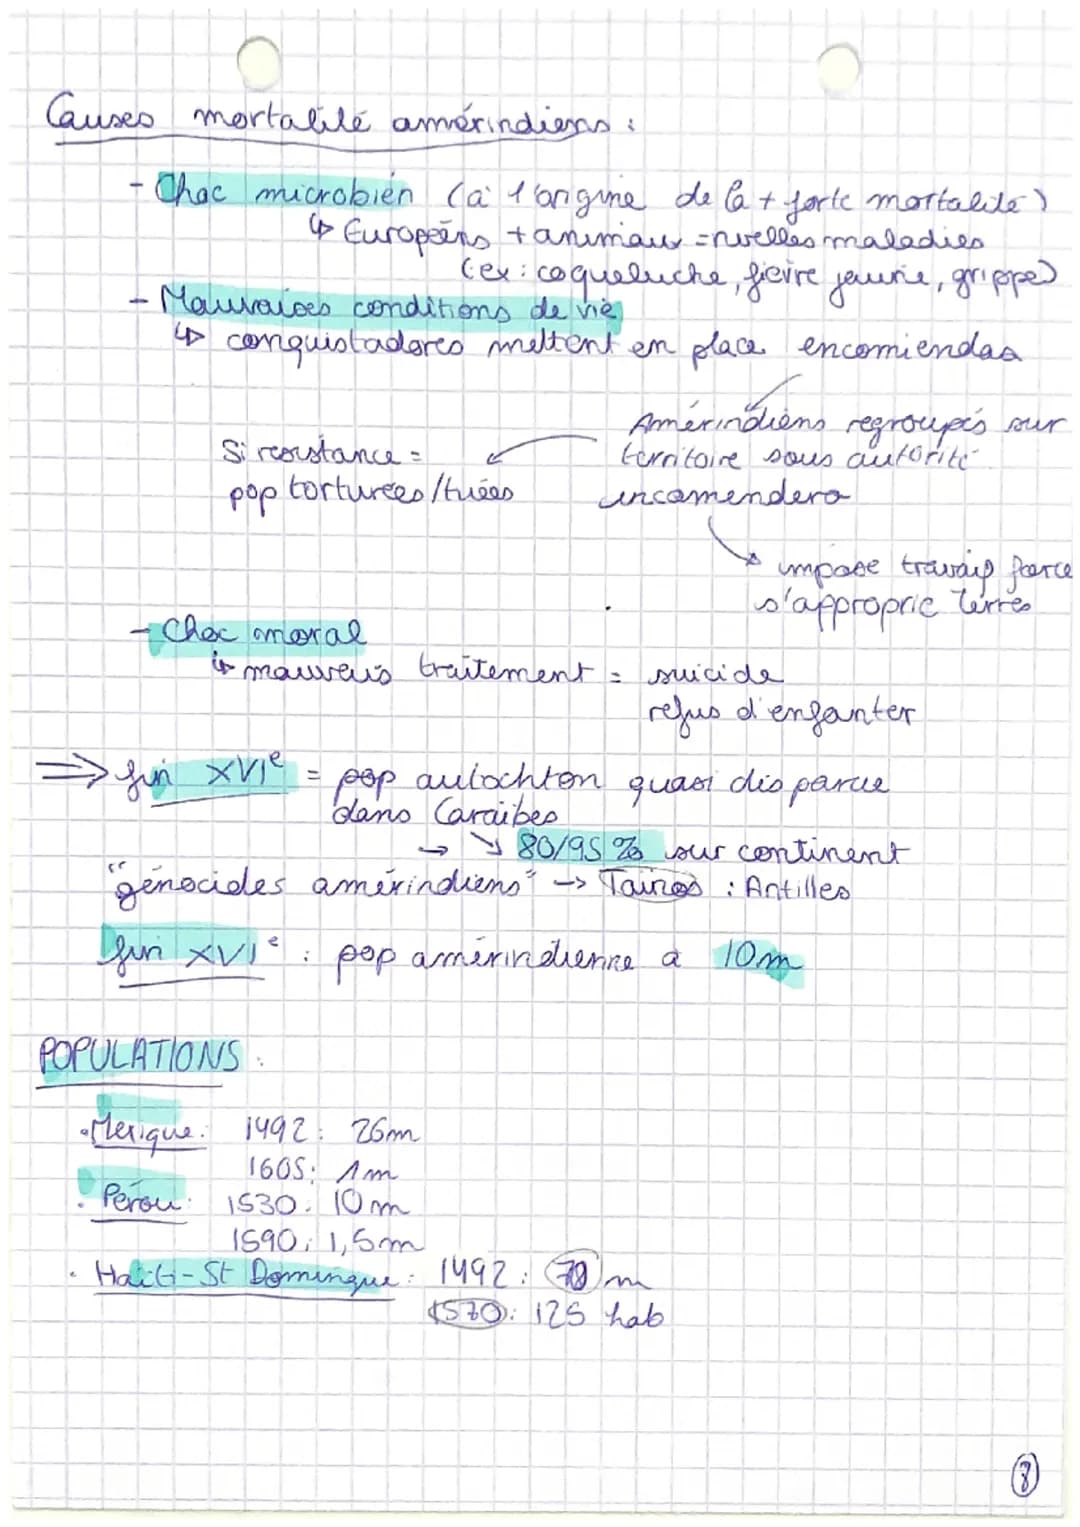 Causes mortalité amérindiens :
- Choc microbien (à l'origine de la + forte mortalité)
↳ Européens + animaux = nvelles maladies
(ex : coqueluche, fièvre jaune, grippe)
- Mauvaises conditions de vie
↳ conquistadores mettent en place encomiendas
Amérindiens regroupés sur
territoire sous autorité
encomendero
Si résistance =
pop torturées/tuées
→ impose travail force
s'approprie terres
- Choc moral
↳ mauvais traitement = suicide
refus d'enfanter
⇒ fin XVIe = pop autochton quasi disparue
dans Caraïbes
→ ↘ 80/95 % sur continent
"génocides amérindiens" → Tainos : Antilles
fin XVIe : pop amérindienne à 10m
POPULATIONS :
• Mexique : 1492 : 26m
1605 : 1m
• Pérou : 1530 : 10m
1590 : 1,5m
• Haiti-St Domingue : 1492 : m
1570 : 125 hab
8